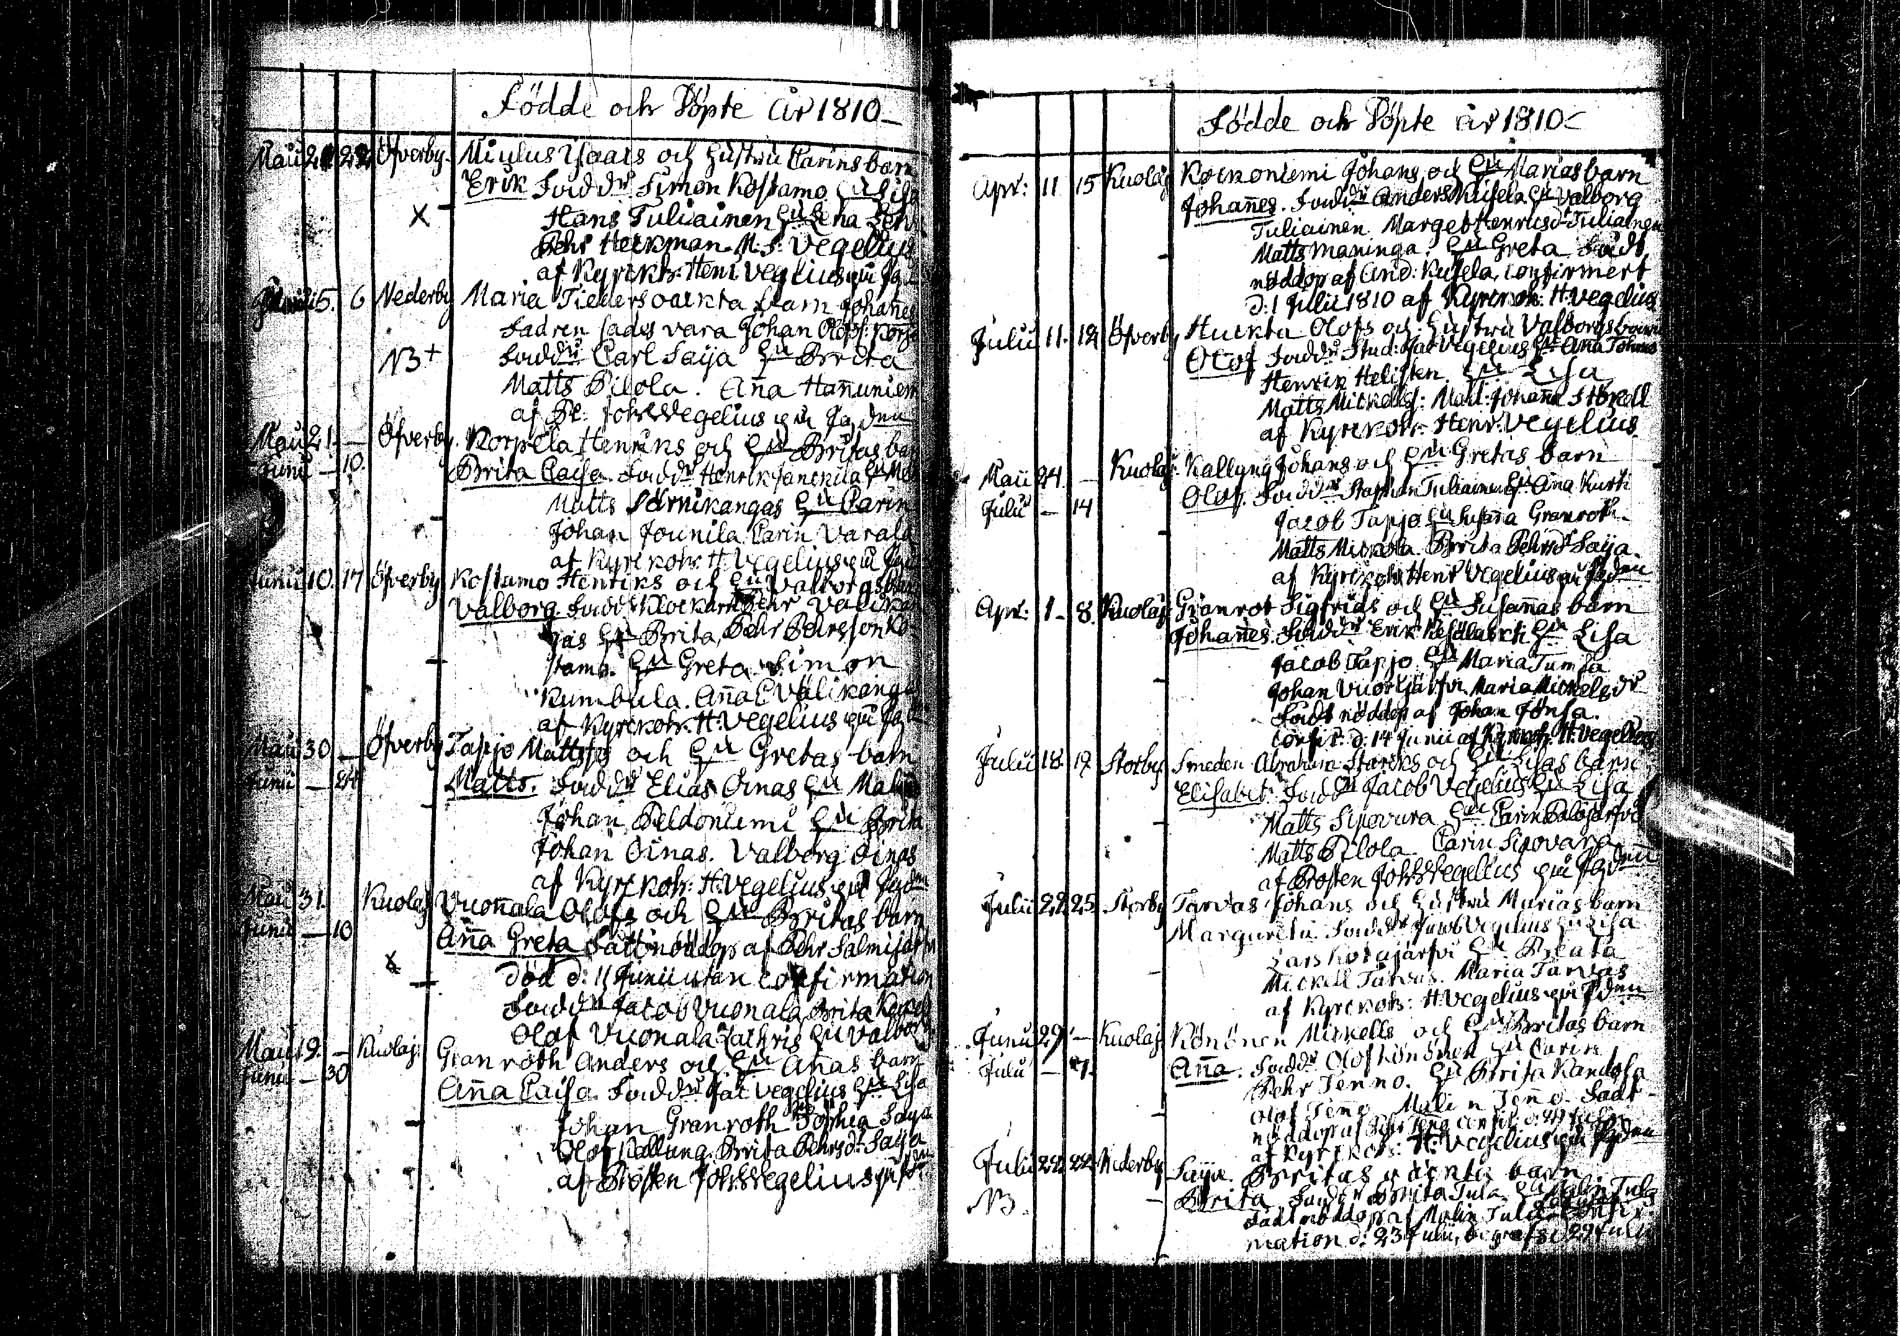 Födde och Döpte år 1810
Maii 21 22 Öfverby Miulus Isaacs och Hustru Carins barn
Erik Fadd: Simon Kostamo Hu Lisa
X Hans Tuliainen Hu Lena
Pehr Heikman. M: S: Vegelius
af Kyrckoh: Henr Vegelius
5. 6 Nederby Maria Tiedersoainta barn Johañes
Fadren sades vara Johan Olofs:
NB + Fadd: Carl Saija Hu Brita
Matts Pilola. Aña Hañuniem
af Pr: Joh: Vegelius
Maii 21 — Öfverby. Korpela Henriks och Hu Britas barn
Junii — 10. Brita Caisa. Fadd: Henrik Janckila
Matts Särnikangas Hu Carin
Johan Jounila Carin Varala
af Kyrckoh: H: Vegelius
Junii 10. 17 Öfverby Kostamo Henriks och Hu Valborgs barn
Valborg Fadd: Klockarn Pehr
Hu Brita, Pehr Pehrsson Ko-
stamo. Hu Greta Simon
Kumbula. Aña C Välikanga
af Kyrckoh: H: Vegelius
Maii 30 — Öfverby Tapjo Matts och Hu Gretas barn
Junii — 24 Matts. Fadd: Elias Oinas Hu Malin
Johan Peldoniemi Hu Brita
Johan Oinas. Valborg Oinas
af Kyrckoh: H: Vegelius
Maii 31. Kuolaj Vuoñala Olofs och Hu Britas barn
Junii — 10 Aña Greta Fått nöddop af Pehr Salmijärfvi
X död d: 11 Junii utan Confirmation
Fadd: Jacob Vuonala Brita
Olof Vuonala Hu Valborg
Maii 19. — Kuolaj: Granroth Anders och Hu Añas barn
Junii — 30 Aña Caisa. Fadd: Jac Vegelius Hu Lisa
Johan Granroth Sophia Saija
Olof Kallung. Brita Pehrsd: Saija
af Prosten Joh: Vegelius
Födde och Döpte år 1810
Apr: 11 15 Kuolaj Korkoniemi Johans och Hu Marias barn
Johañes. Fadd: Anders Kusela Hu Valborg
Tuliainen Marget Henriksd: Tuliainen
Matts Maninga. Hu Greta Fådt
nöddop af And: Kusela, confirmert
d: 1 Julii 1810 af Kyrckoh: H: Vegelius
Julii 11. 12 Öfverby Huckta Olofs och Hustru Valborgs barn
Olof Fadd: Stud: Jac Vegelius
Henrik Helisten Hu Lisa
Matts Mickelss: Mad: Johaña Störell
af Kyrckoh: Henr: Vegelius.
Maii 24. — Kuolaj Kallung Johans och Hu Gretas barn
Julii — 14 Olof. Fadd: Staphan Tuliainen Hu Aña Kurti
Jacob Tapjo Hu Susaña Granroth.
Matts Mickola. Brita Pehrsd: Saija.
af Kyrckoh: Henr Vegelius
Apr: 1 - 8. Kuolaj Granrot Sigfrids och Hu Susañas barn
Johañes. Fadd: Erik Hu Lisa
Jacob Tapjo. Hu Maria Tumsa
Johan Vuorijärfvi. Maria Mickelsdr
Fådt nöddop af Johan Jönsa.
Confir: d: 14 Junii af Kyrckoh: H: Vegelius
Julii 18. 19 Storby Smeden Abraham Starcks och Hu Lisas barn
Elisabet. Fadd: Jacob Vegelius Hu Lisa
Matts Sipovara Hu Carin Palojärfvi
Matts Pilola Carin Sipovara
af Prosten Joh: Vegelius
Julii 22 25. Storby Tarvas Johans och Hustru Marias barn
Margareta Fadd: Jacob Vegelius Hu Lisa
Lars Kotajärfvi Hu Beata
Mickell Tarvas. Maria Tarvas
af Kyrckoh: H: Vegelius
Junii 29 — Kuolaj Könönen Mickells och Hu Britas barn
Julii — 7. Aña. Fadd: Olof Könönen Hu Carin
Pehr Jenno. Hu Brita Kandola
Olof Jeno. Malin Jeno. Fådt
nöddop af
af Kyrckoh: H: Vegelius
Julii 22 22 Nederby Saija. Britas oäckta barn
NB. Brita Fadd: Brita Tula
Fådt nöddop af Malin Tula
mation d: 23 Julii, begrafs d 29 Julii